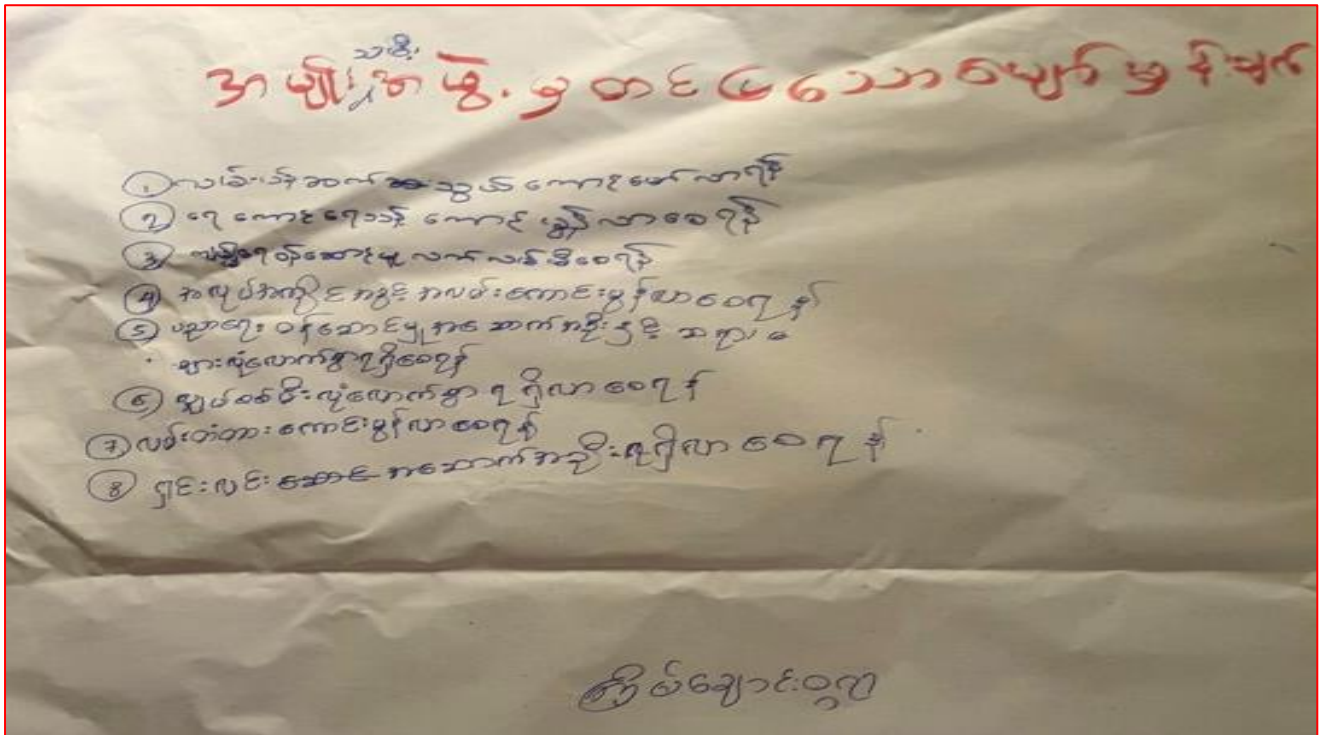 သမီး
အမျိုးအဖွဲ့မှတင်ပြသောမျှော်မှန်းချက်
① လမ်းပန်းဆက်သွယ် ကောင်းမော်လာရန်
② ရေကောင်းရေသန့် ကောင်းမွန်လာစေရန်
③ ကျန်းမာရေးဝန်ဆောင်မှု လက်လှမ်းမှီစေရန်
④ အလုပ်အကိုင်အခွင့်အလမ်းကောင်းမွန်လာစေရန်
⑤ ပညာရေးဝန်ဆောင်မှုအဆောက်အဦးနှင့် ဆရာ/မ
များလုံလောက်စွာရရှိစေရန်
⑥ လျှပ်စစ်မီးလုံလောက်စွာ ရရှိလာစေရန်
⑦ လမ်းတံတားကောင်းမွန်လာစေရန်
⑧ ရှင်းလင်းဆောင် အဆောက်အဦးရရှိလာစေရန်